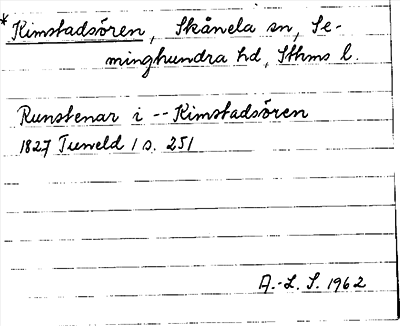 *Kimstadsören, Skånela sn, Se-
minghundra hd, Sthms l.
Runstenar i -- Kimstadsören
1827 Tuneld 1 s. 251
A.-L. S. 1962